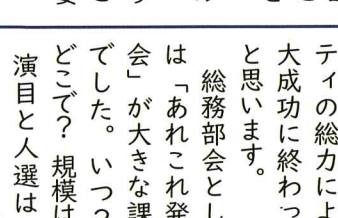 ティの総力によ
大成功に終わっ
と思います。
総務部会とし
は「あれこれ発
会」が大きな課
でした。いつ？
どこで？ 規模は
演目と人選は